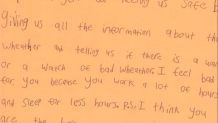 for keeping us safe b
giving us all the information about the
wheather and telling us if there is a war
or a watch of bad wheather. I feel bad
for you because you work a lot of hours
and sleep for less hours. P.S. I think you
are the